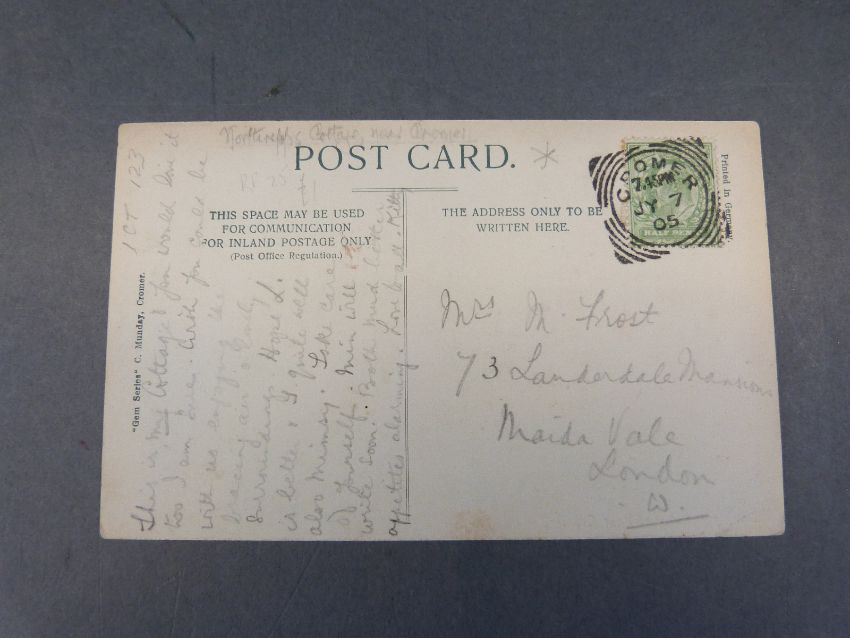 Northrepps Cottage, near Cromer.
POST CARD.
1 CT 123
THIS SPACE MAY BE USED
FOR COMMUNICATION
FOR INLAND POSTAGE ONLY
(Post Office Regulation.)
THE ADDRESS ONLY TO BE
WRITTEN HERE.
CROMER
7.45PM
JY 7
05
HALF PENNY
Printed in Germany.
"Gem Series" C. Munday, Cromer.
This is my Cottage! You would love it
too I am sure. Wish you could be
with us enjoying the
bracing air & lovely
surroundings. Hope L.
is better & G quite well
also Mimsy. Take care
of yourself. Min will
write soon. Both much better
appetites alarming. Love to all. Kitty
Mrs M. Frost
73 Lauderdale Mansions
Maida Vale
London
W.